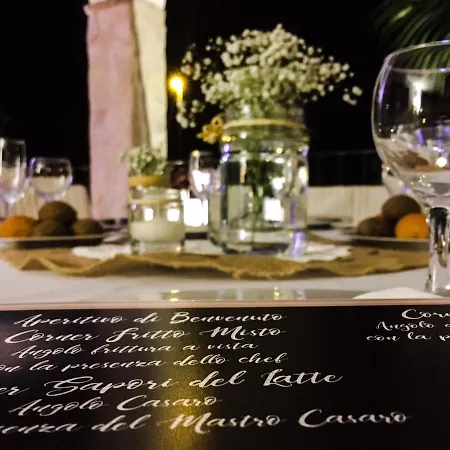 Aperitivo di Benvenuto
Corner Fritto Misto
Angolo frittura a vista
con la presenza dello chef
Sapori del Latte
Angolo Casaro
del Mastro Casaro
Corn
Angolo
con la p